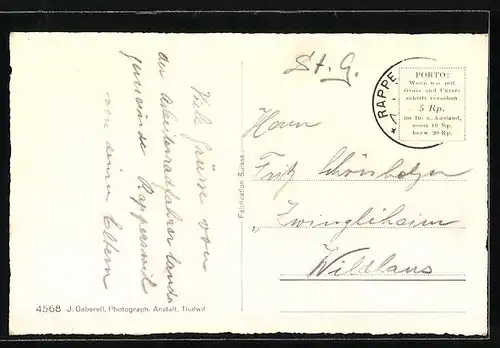 Viele Grüsse von
der Arbeiterradfahrer lands-
gemeinde Rapperswil
von deinen Eltern
St. G.
Herrn
Fritz Schönholzer
"Zwingliheim
Wildhaus
RAPPE
PORTO:
Wenn nur mit
Gruss und Unter-
schrift versehen
5 Rp.
im In- u. Ausland,
sonst 10 Rp.
bezw. 20 Rp.
Fabrication Suisse
4568 J. Gaberell, Photograph. Anstalt, Thalwil